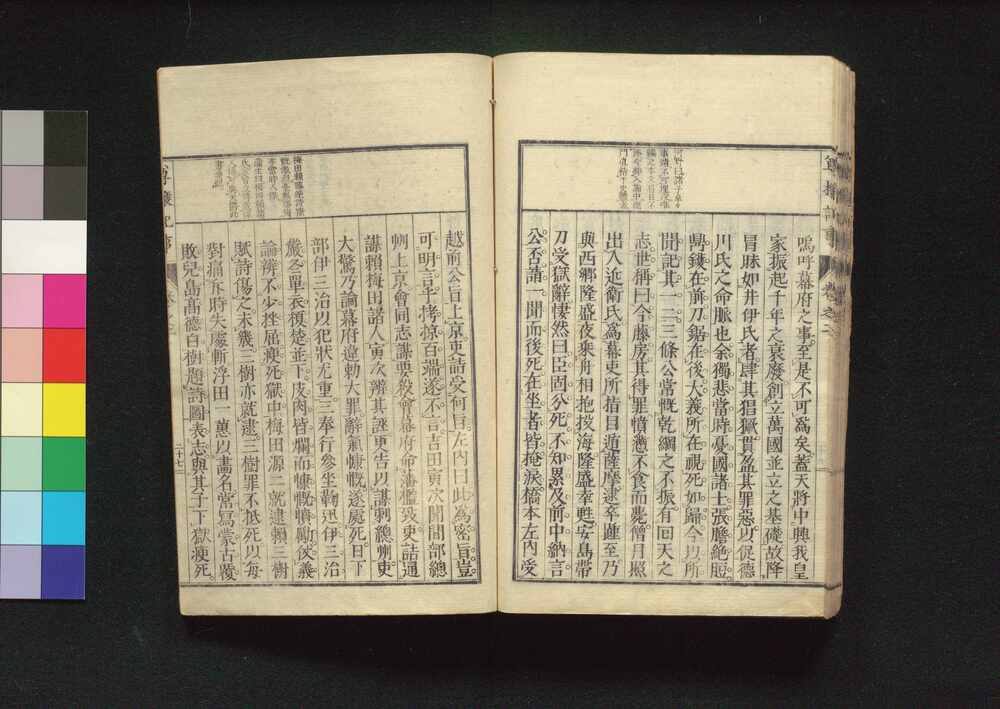 嗚呼幕府之事至是不可為矣蓋天將中興我皇
家振起千年之衰廢創立萬國並立之基礎故降
冒昧如井伊氏者肆其猖獗貫盈其罪惡以促德
川氏之命脈也余獨悲當時憂國諸士張膽絕脰
鼎鑊在前刀鋸在後大義所在視死如歸今以所
聞記其一二三條公常慨乾綱之不振有回天之
志世稱曰今藤房其得罪憤懣不食而斃僧月照
出入近衛氏為幕吏所指目遁薩摩逮卒踵至乃
與西鄉隆盛夜乘舟相抱投海隆盛幸甦安島帶
刀受獄辭悽然曰臣固分死不知累及前中納言
公否請一聞而後死在坐者皆掩淚橋本左內受
越前公旨上京吏詰受何旨左內曰此為密旨豈
可明言乎拷掠百端遂不言吉田寅次聞間部總
州上京會同志謀要殺會幕府命藩檻致吏詰通
謀賴梅田諸人寅次辨其誣更告以謀刺總州吏
大驚乃諭幕府違勅大罪辭氣慷慨遂處死日下
部伊三治以犯狀尤重三奉行參坐鞫訊伊三治
嚴冬單衣榎楚並下皮肉皆爛而慷慨憤勵仗義
論辨不少挫屈瘐死獄中梅田源二就逮賴三樹
賦詩傷之未幾三樹亦就逮三樹罪不抵死以每
對痛斥時失處斬浮田一蕙以畫名常寫蒙古覆
敗兒島高德白樹題詩圖表志與其子下獄瘐死
二十七